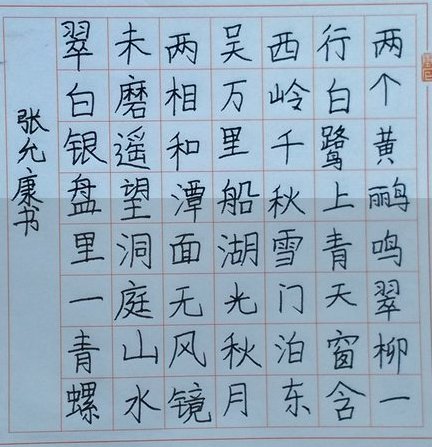 两个黄鹂鸣翠柳一
行白鹭上青天窗含
西岭千秋雪门泊东
吴万里船湖光秋月
两相和潭面无风镜
未磨遥望洞庭山水
翠白银盘里一青螺
张允康书